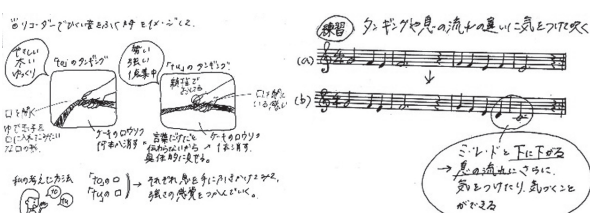 リコーダーでひくい音をふく時をイメージして。
やさしい
太い
ゆっくり
「to」のタンギング
口を開く
ゆで玉子を
口に入れたみたい
な口の形。
ケーキのロウソク
何本か消す
「tu」のタンギング
強い
ケーキのロウソク
1本消す。
言葉だけだと
伝わらないから
具体的に見せる。
私の考えた方法
「to」の口
「tu」の口
→ それぞれ息を手に
強さの感覚をつかんでいく。
to
tu
練習 タンギングや息の流れの違いに気をつけて吹く
(a)
(b)
ミ・レ・ドと下に下がる
→ 息の流れにさらに、
気をつけたり、気づくこと
ができる